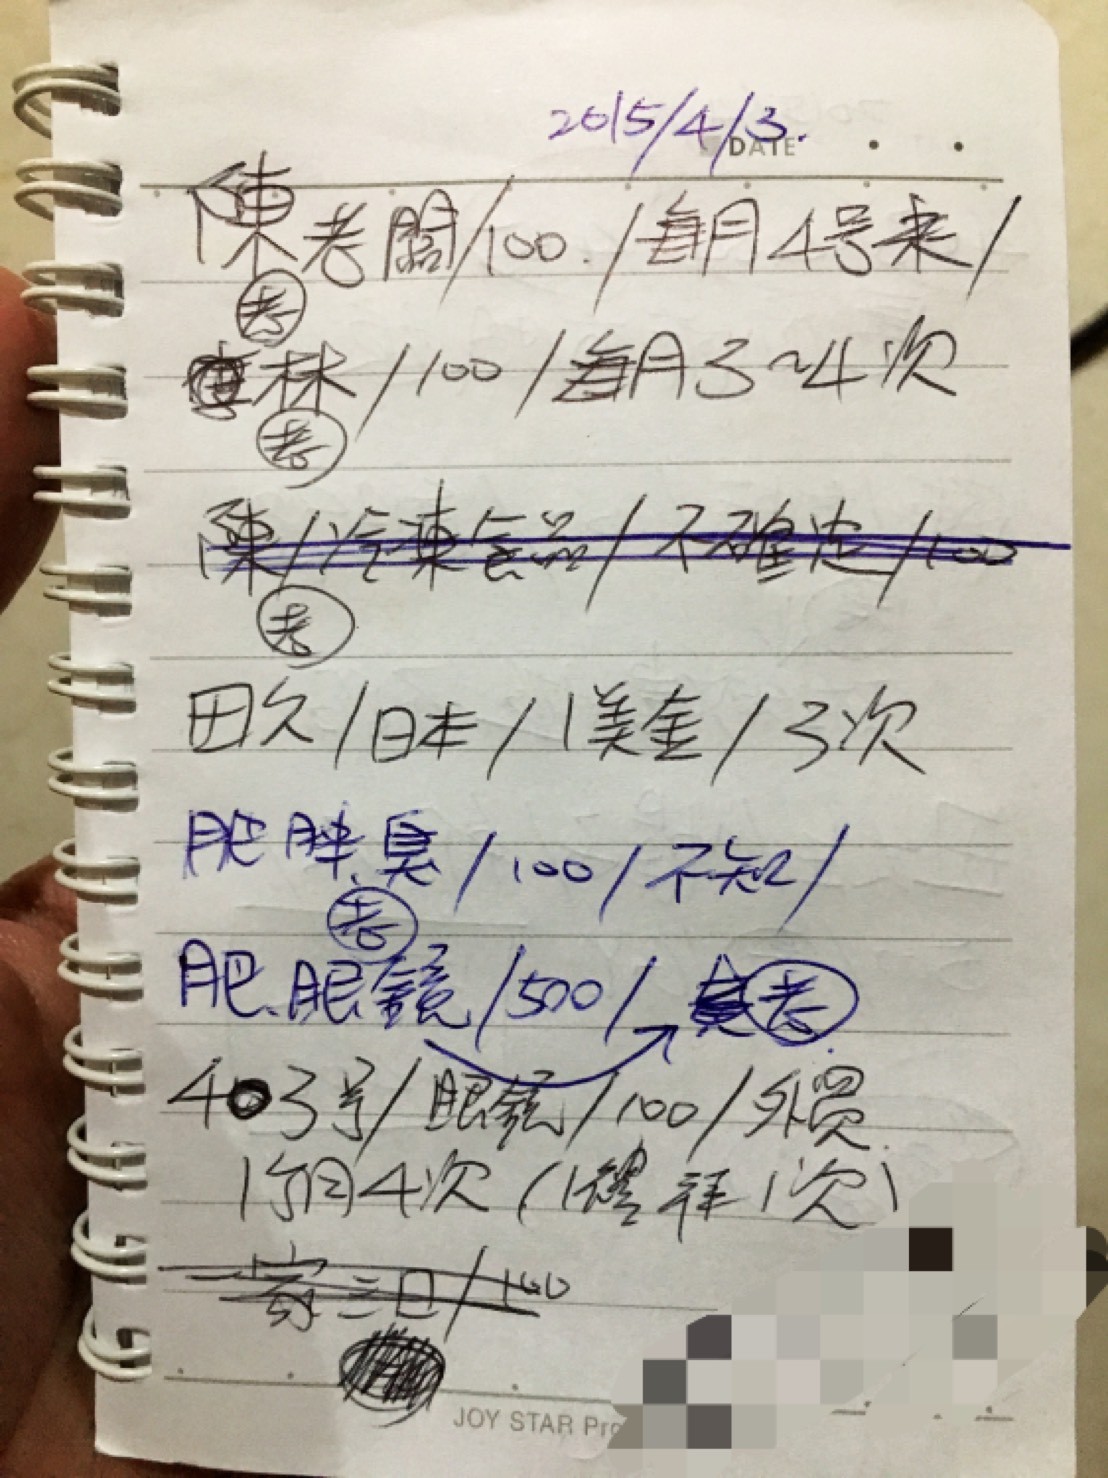 2015/4/3.
DATE
陳老闆/100./每月4号来/
老
林/100/每月3~4次
老
陳/冷凍食品/不確定/100
老
田久/日本/1美金/3次
肥胖臭/100/不知/
老
肥.眼鏡/500/老
403号/眼鏡/100/外貿
1个月4次(1禮拜1次)
一家三口/100
JOY STAR Pro